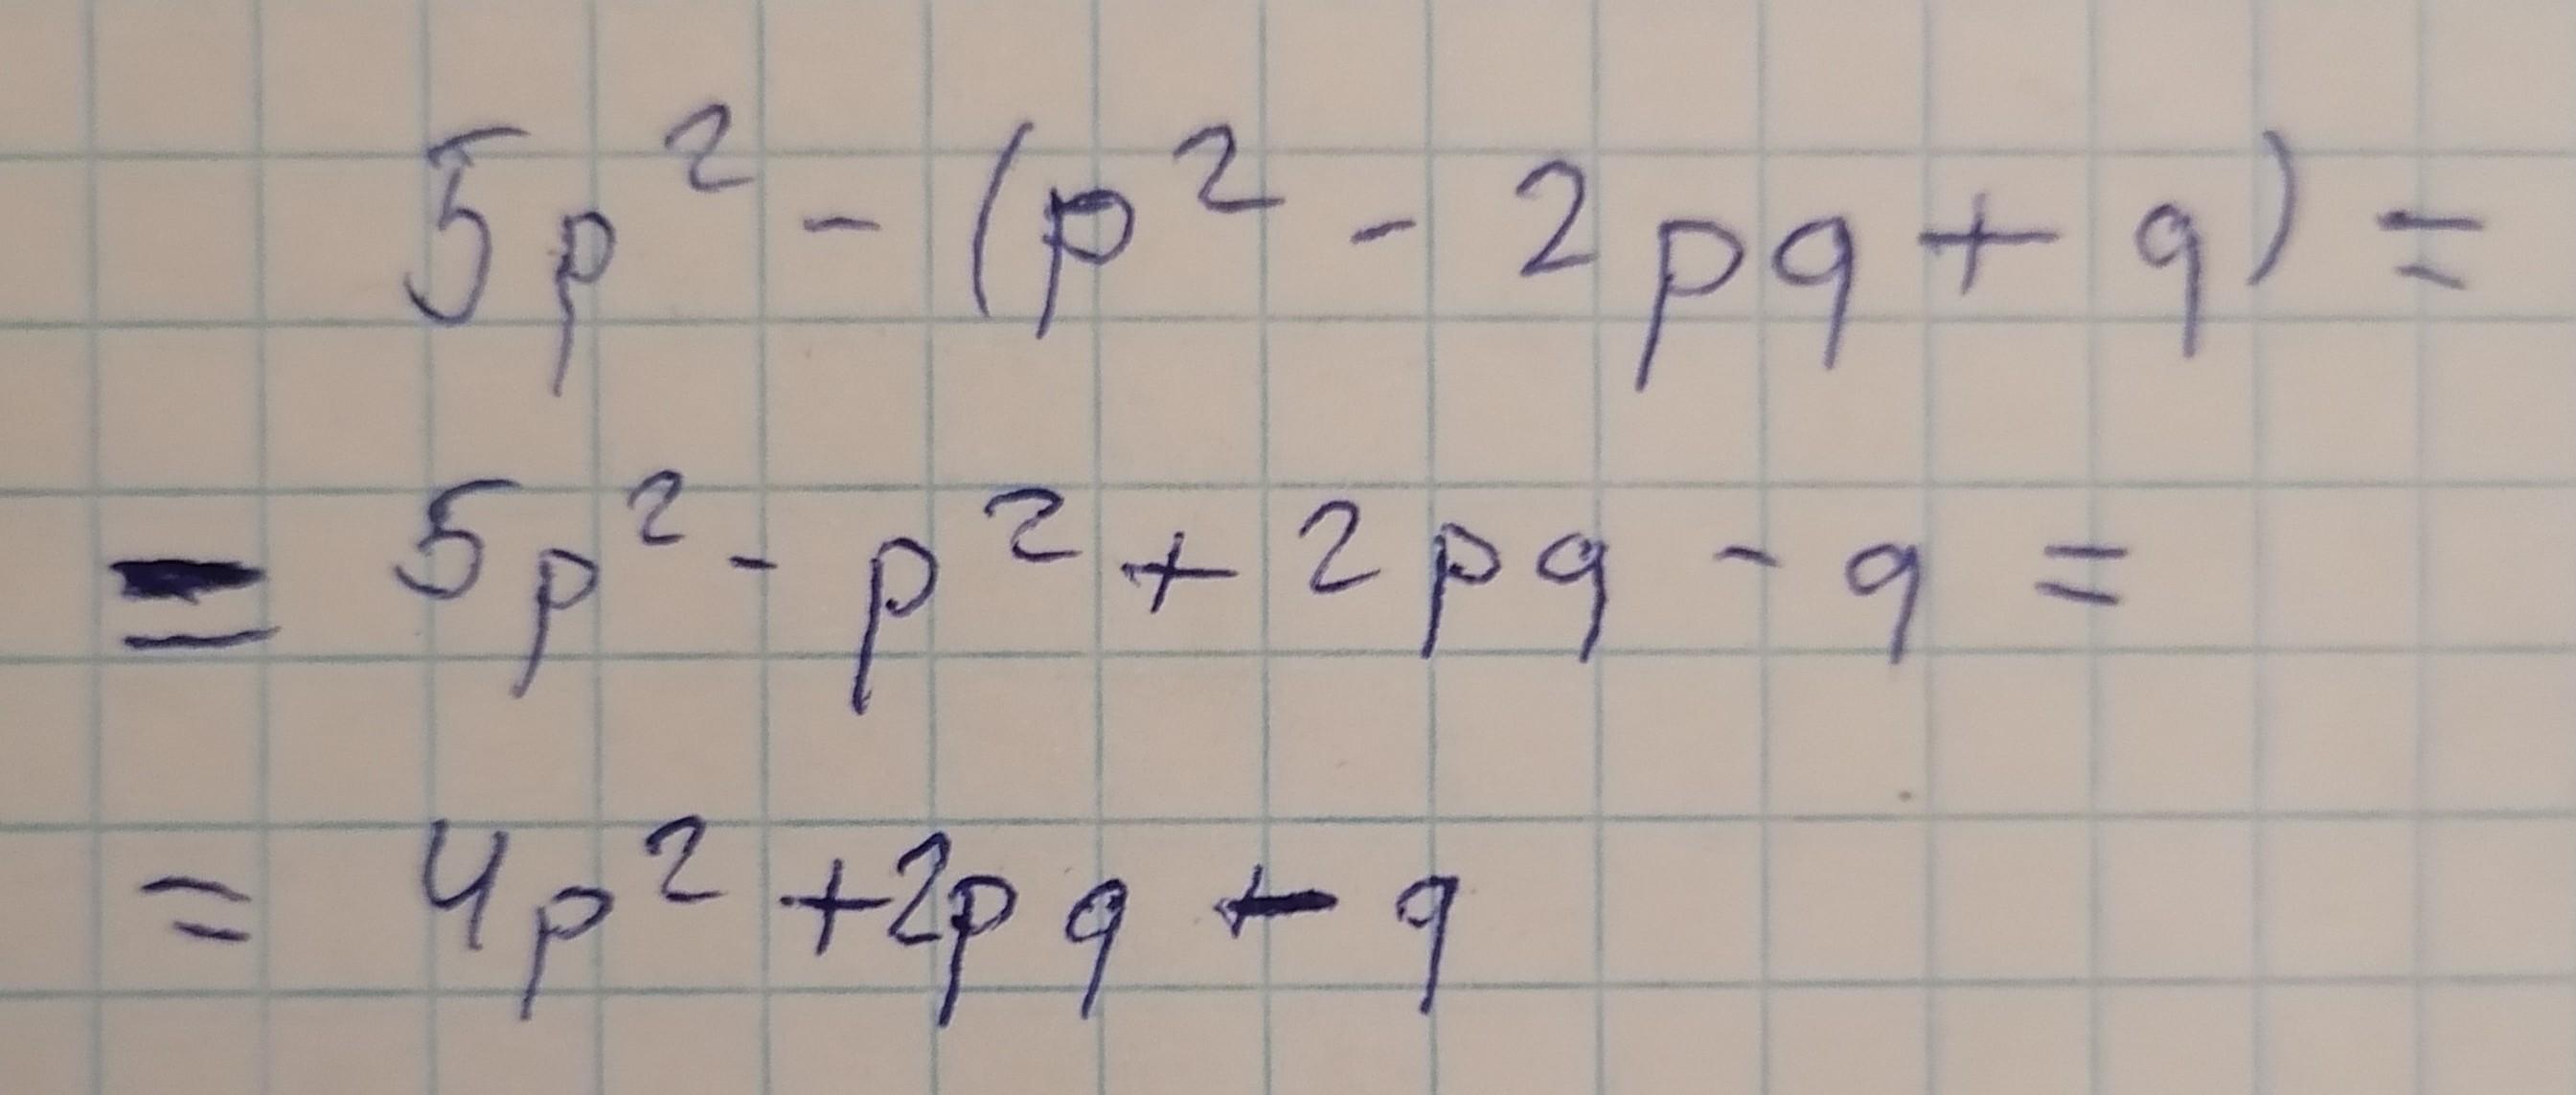 5p² - (p² - 2pq + q) =
= 5p² - p² + 2pq - q =
= 4p² + 2pq - q